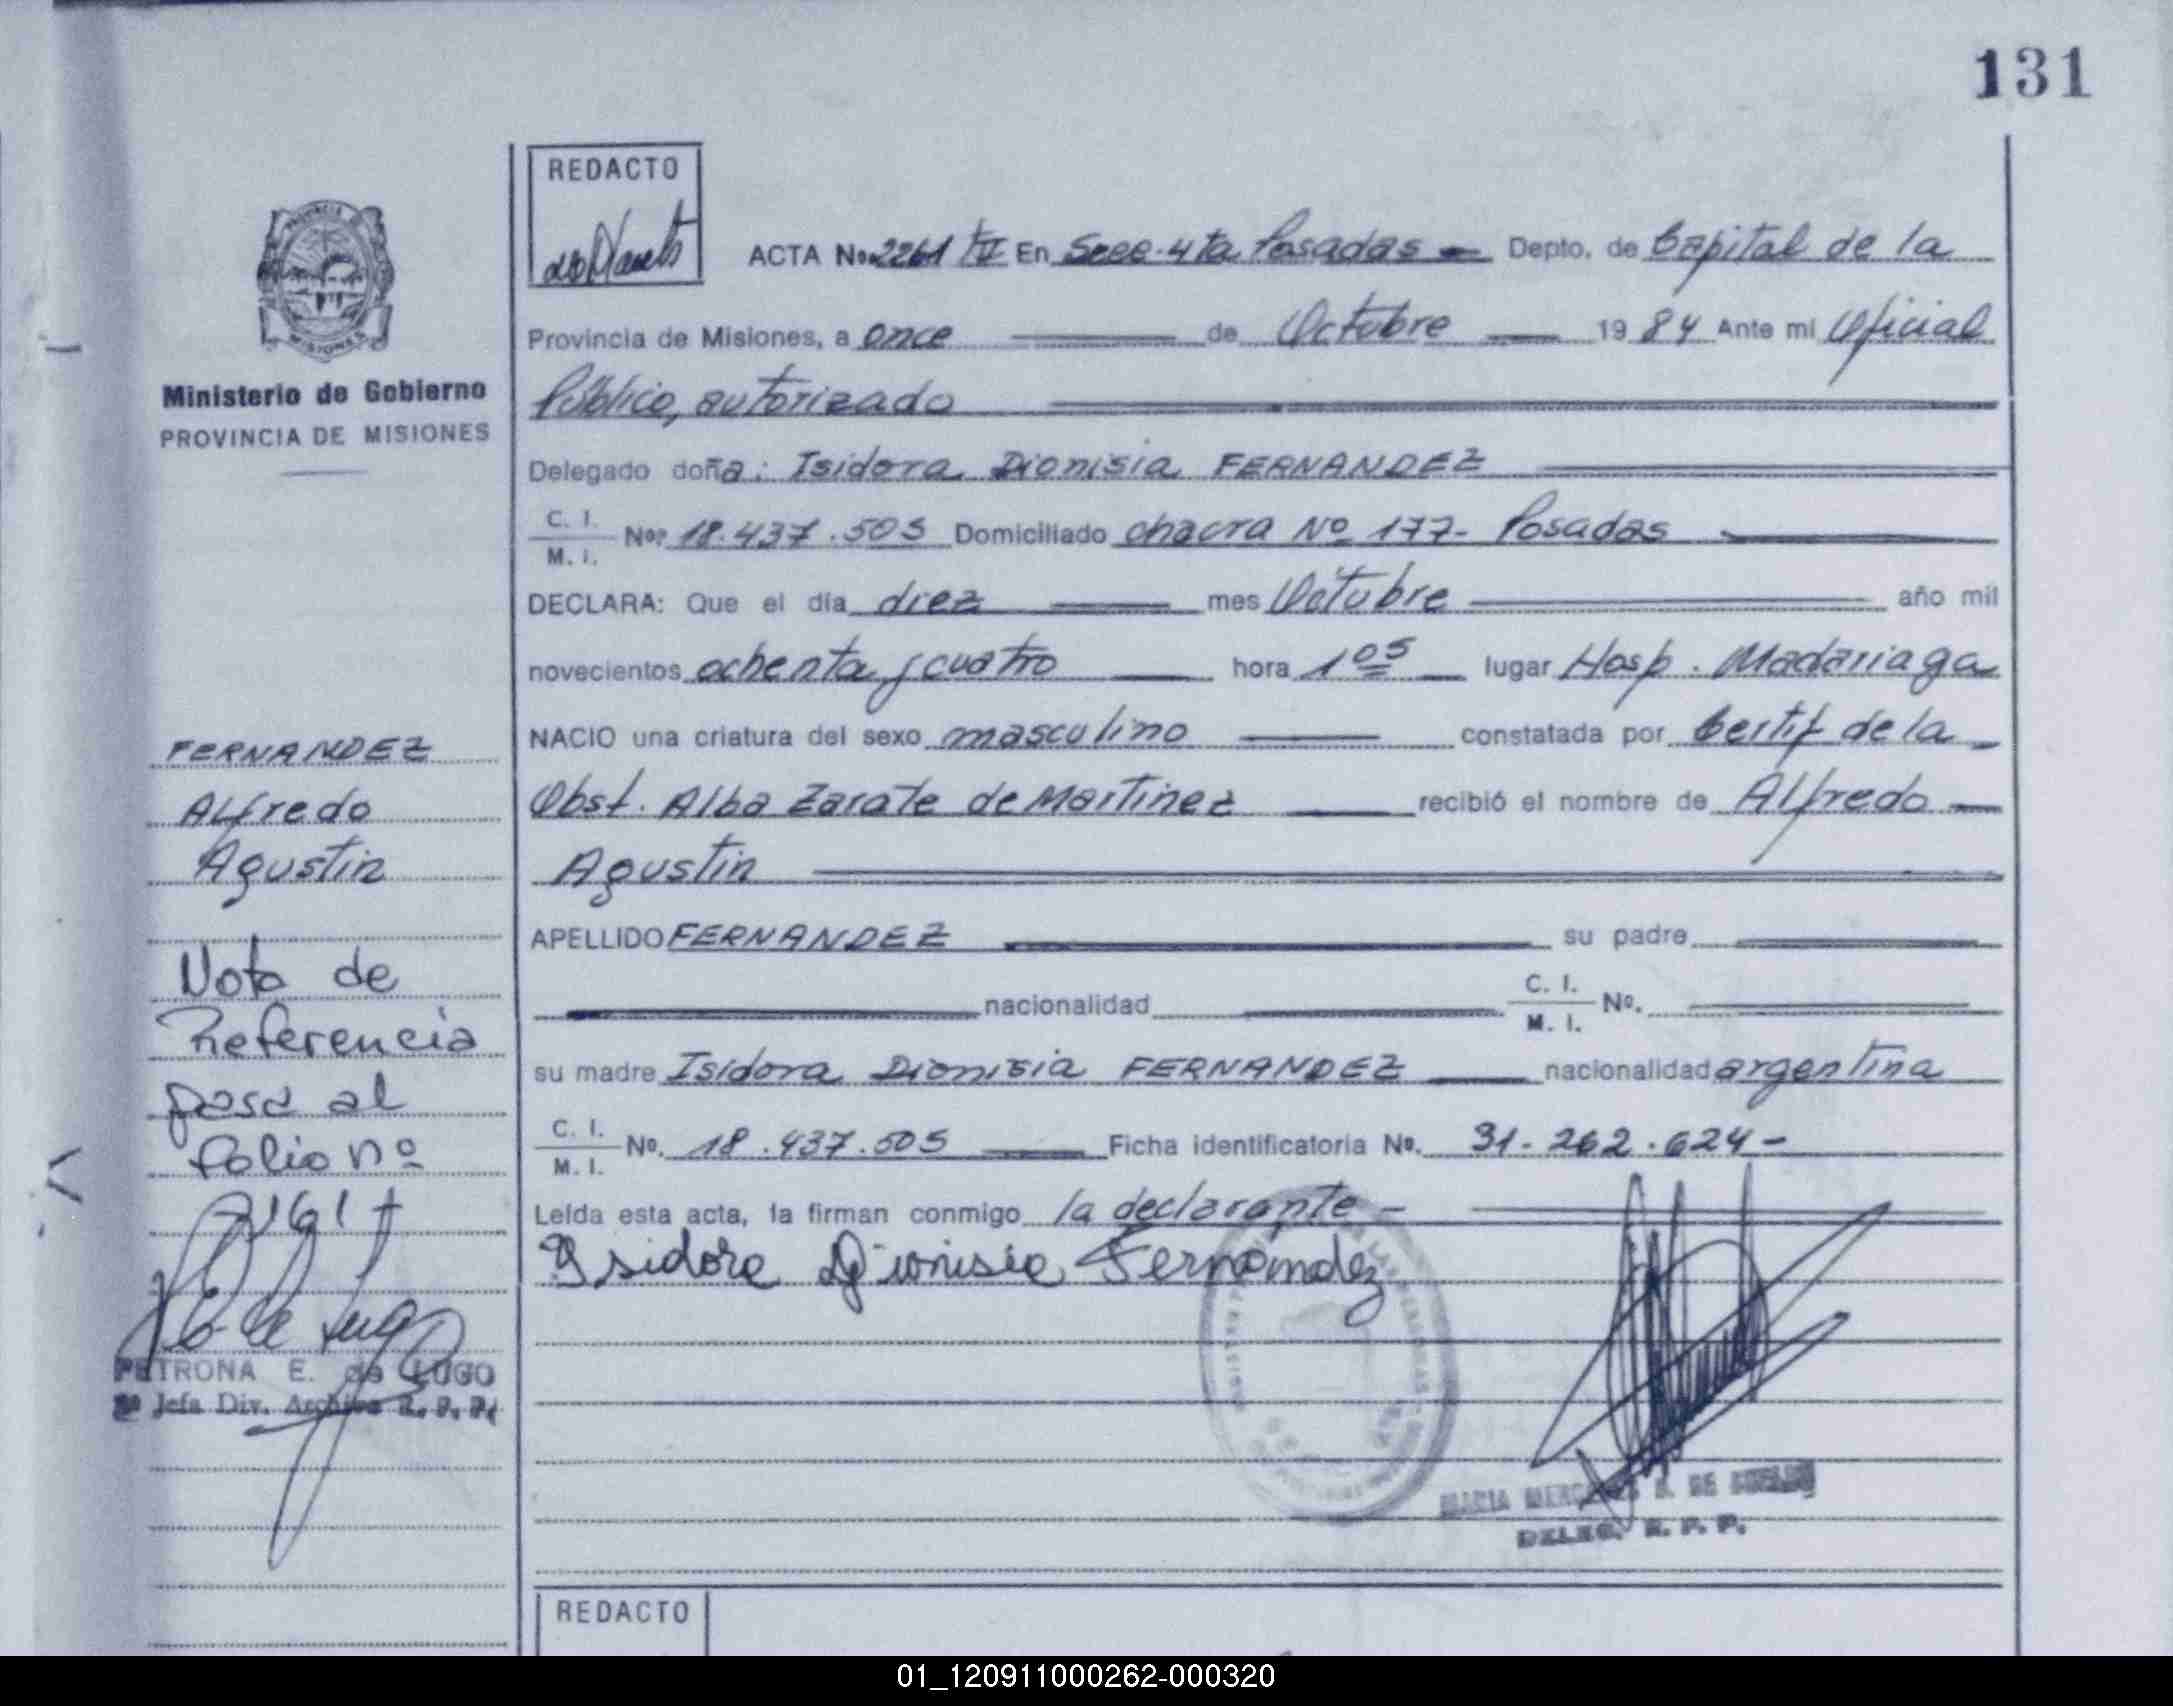 131
REDACTO
ACTA No. 2261 TV En Secc. 4ta Posadas - Depto. de Capital de la
Provincia de Misiones, a once de Octubre 19 84 Ante mi Oficial
Público, autorizado
Delegado doña: Isidora Dionisia FERNANDEZ
C. I.
M. I. No. 18.437.505 Domiciliado chacra Nº 177- Posadas
DECLARA: Que el día diez mes Octubre año mil
novecientos ochenta y cuatro hora 1 05 lugar Hosp. Madariaga
NACIO una criatura del sexo masculino constatada por Certif de la
Obst. Alba Zarate de Martinez recibió el nombre de Alfredo
Agustin
APELLIDO FERNANDEZ su padre
nacionalidad C. I.
M. I. No.
su madre Isidora Dionisia FERNANDEZ nacionalidad argentina
C. I.
M. I. No. 18.437.505 Ficha identificatoria No. 31.262.624-
Leída esta acta, la firman conmigo la declarante -
Isidora Dionisia Fernandez
DELEG. R. P. P.
PROVINCIA DE
MISIONES
Ministerio de Gobierno
PROVINCIA DE MISIONES
FERNANDEZ
Alfredo
Agustin
Nota de
Referencia
pasa al
folio nº
PETRONA E. de LUGO
2ª Jefa Div. Archivo R. P. P.
REDACTO
01_120911000262-000320